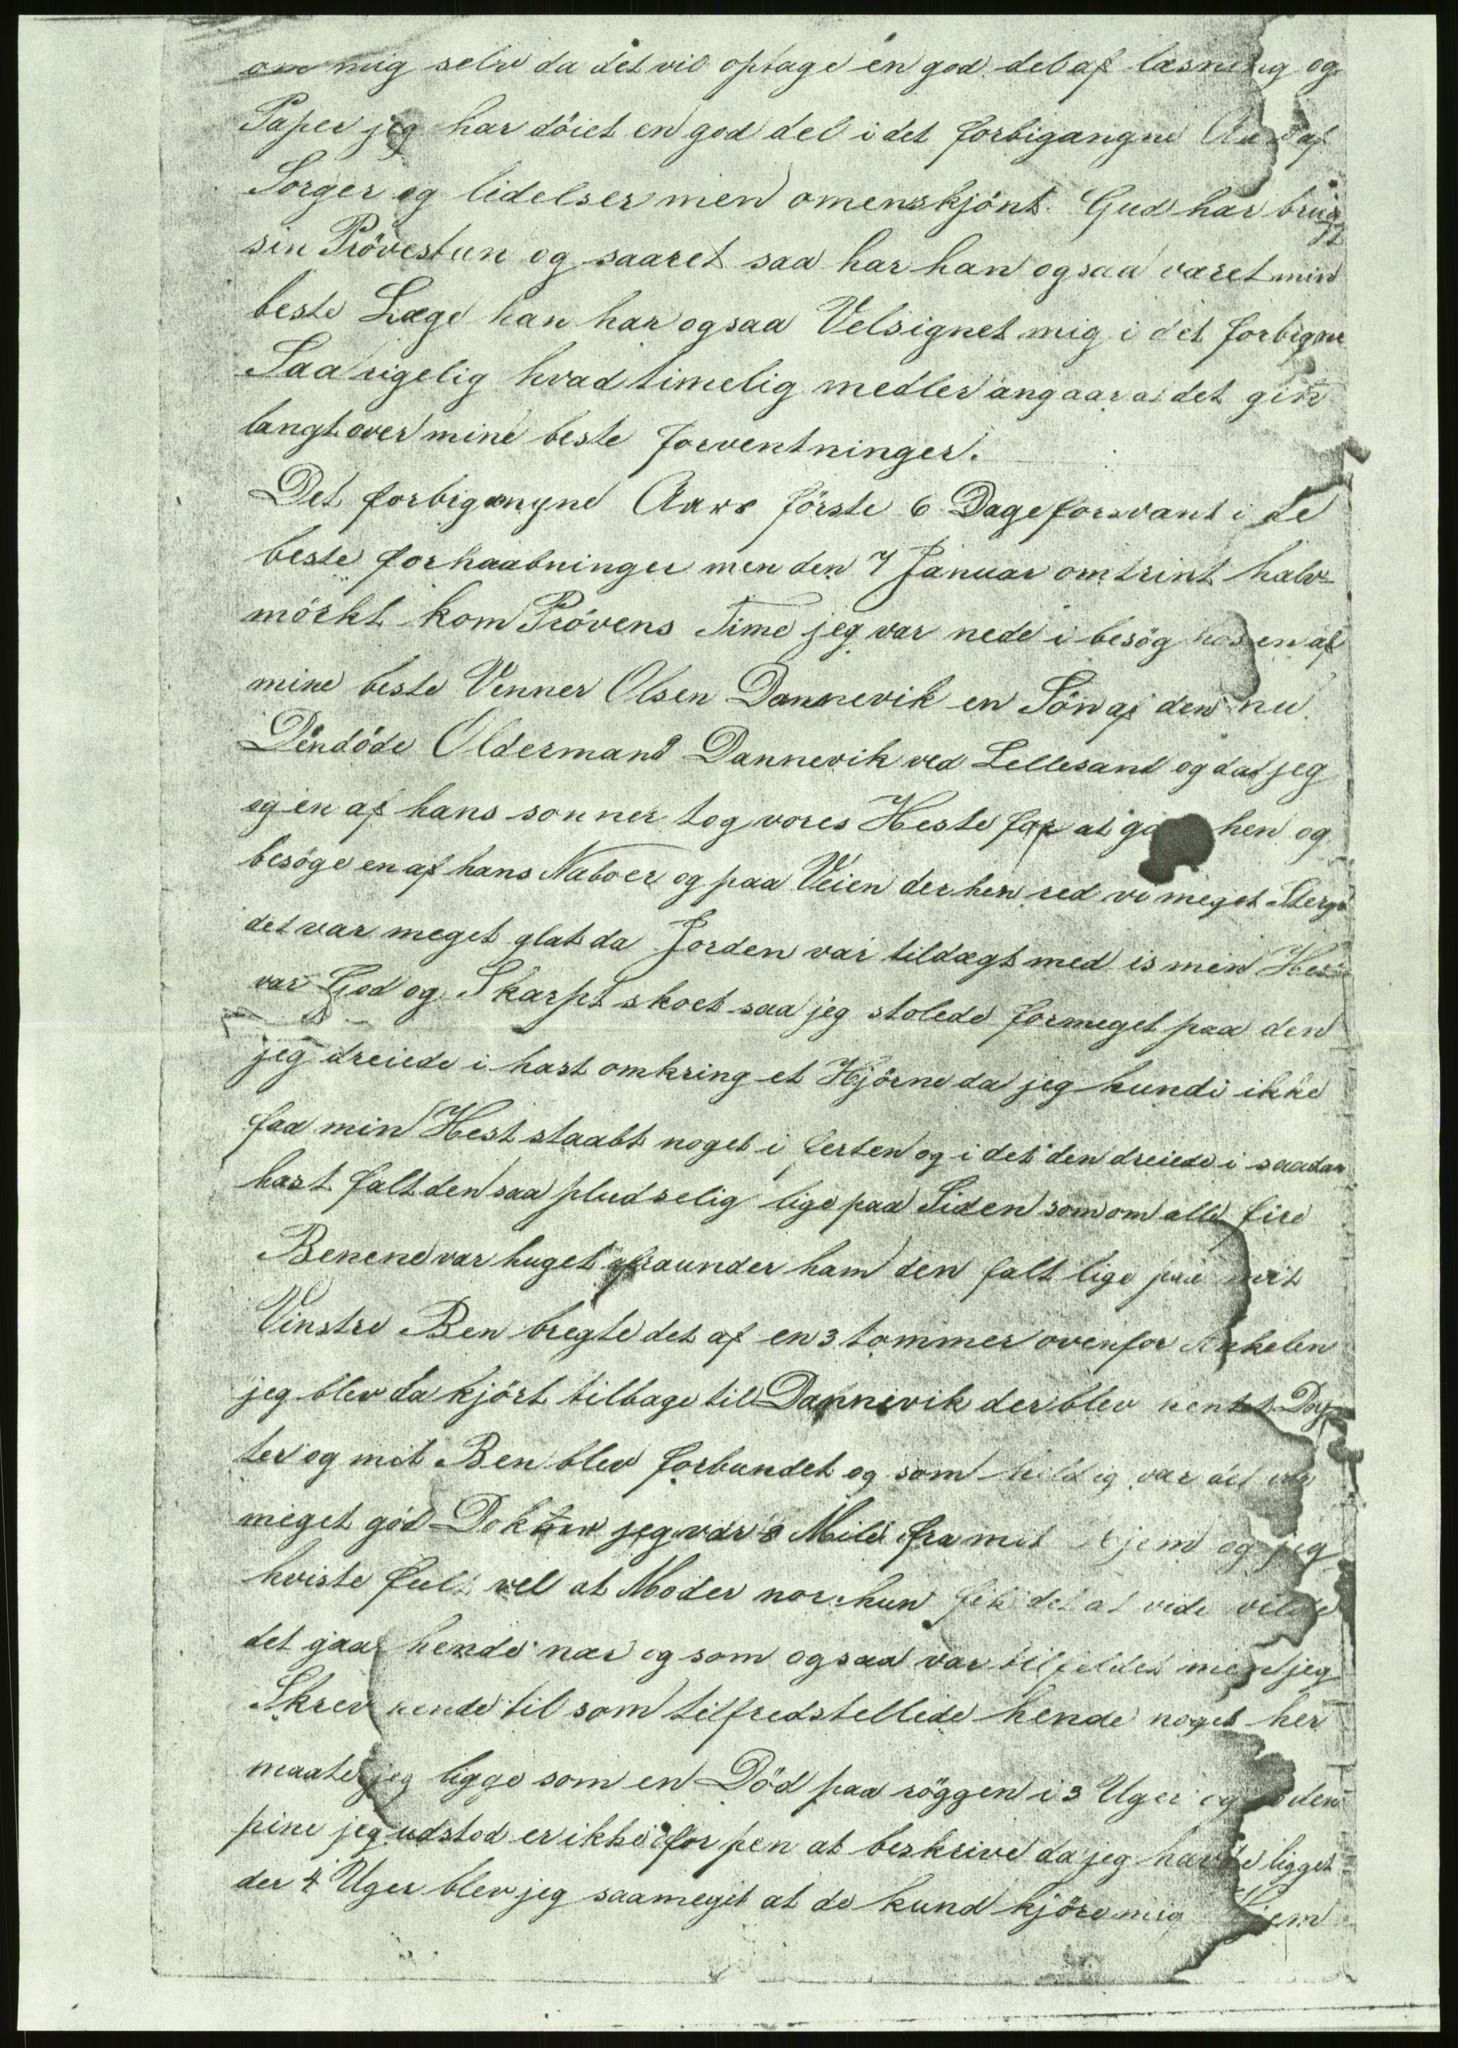 om mig selv da det vil optage en god del af læsning og
Paper jeg har döiet en god del i det forbigangne Aar af
Sorger og lidelser men omenskjönt Gud har brugt
sin Prövestun og saaret saa har han ogsaa været min
beste Læge han har ogsaa Velsignet mig i det forbigne
Saa rigelig hvad timelig medler angaar at det gik
langt over mine beste forventninger.
Det forbigangne Aars förste 6 Dage forsvant i de
beste forhaabninger men den 7 Januar omtrint halv-
mörkt kom Prövens Time jeg var nede i besög hos en af
mine beste Venner Olsen Dannevik en Sön af den nu
Döndöde Oldermand Dannevik ved Lellesand og da jeg
og en af hans sonner tog vores Heste for at gaa hen og
besöge en af hans Naboer og paa Veien der hen red vi meget Stergt
det var meget glat da Jorden var tildægt med is min Hest
var God og Skarpt skoet saa jeg stolede formeget paa den
jeg dreiede i hast omkring et Hjörne da jeg kundi ikke
faa min Hest staabt noget i ferten og i det den dreiede i saadan
hast falt den saa pludselig lige paa Siden som om alle fire
Benene var huget fra under ham den falt lige paa mit
Vinstre Ben bregte det af en 3 tommer ovenfor Ankelen
jeg blev da kjört tilbage til Dannevik der blev hentet Dog
ter og mit Ben blev forbundet og som held ig var det var
meget göd Dokter jeg var 8 Mile fra mit Hjem og jeg
hviste fult vel at Moder nor hun fik det at vide vilde
det gaar hende nær og som ogsaa var tilfeldet men jeg
Skrev hende til som tilfredstellede hende noget her
maate jeg ligge som en Död paa röggen i 3 Uger og den
pine jeg udstod er ikke for pen at beskrive da jeg havde ligget
der 4 Uger blev jeg saameget at de kund kjöre mig Hjem